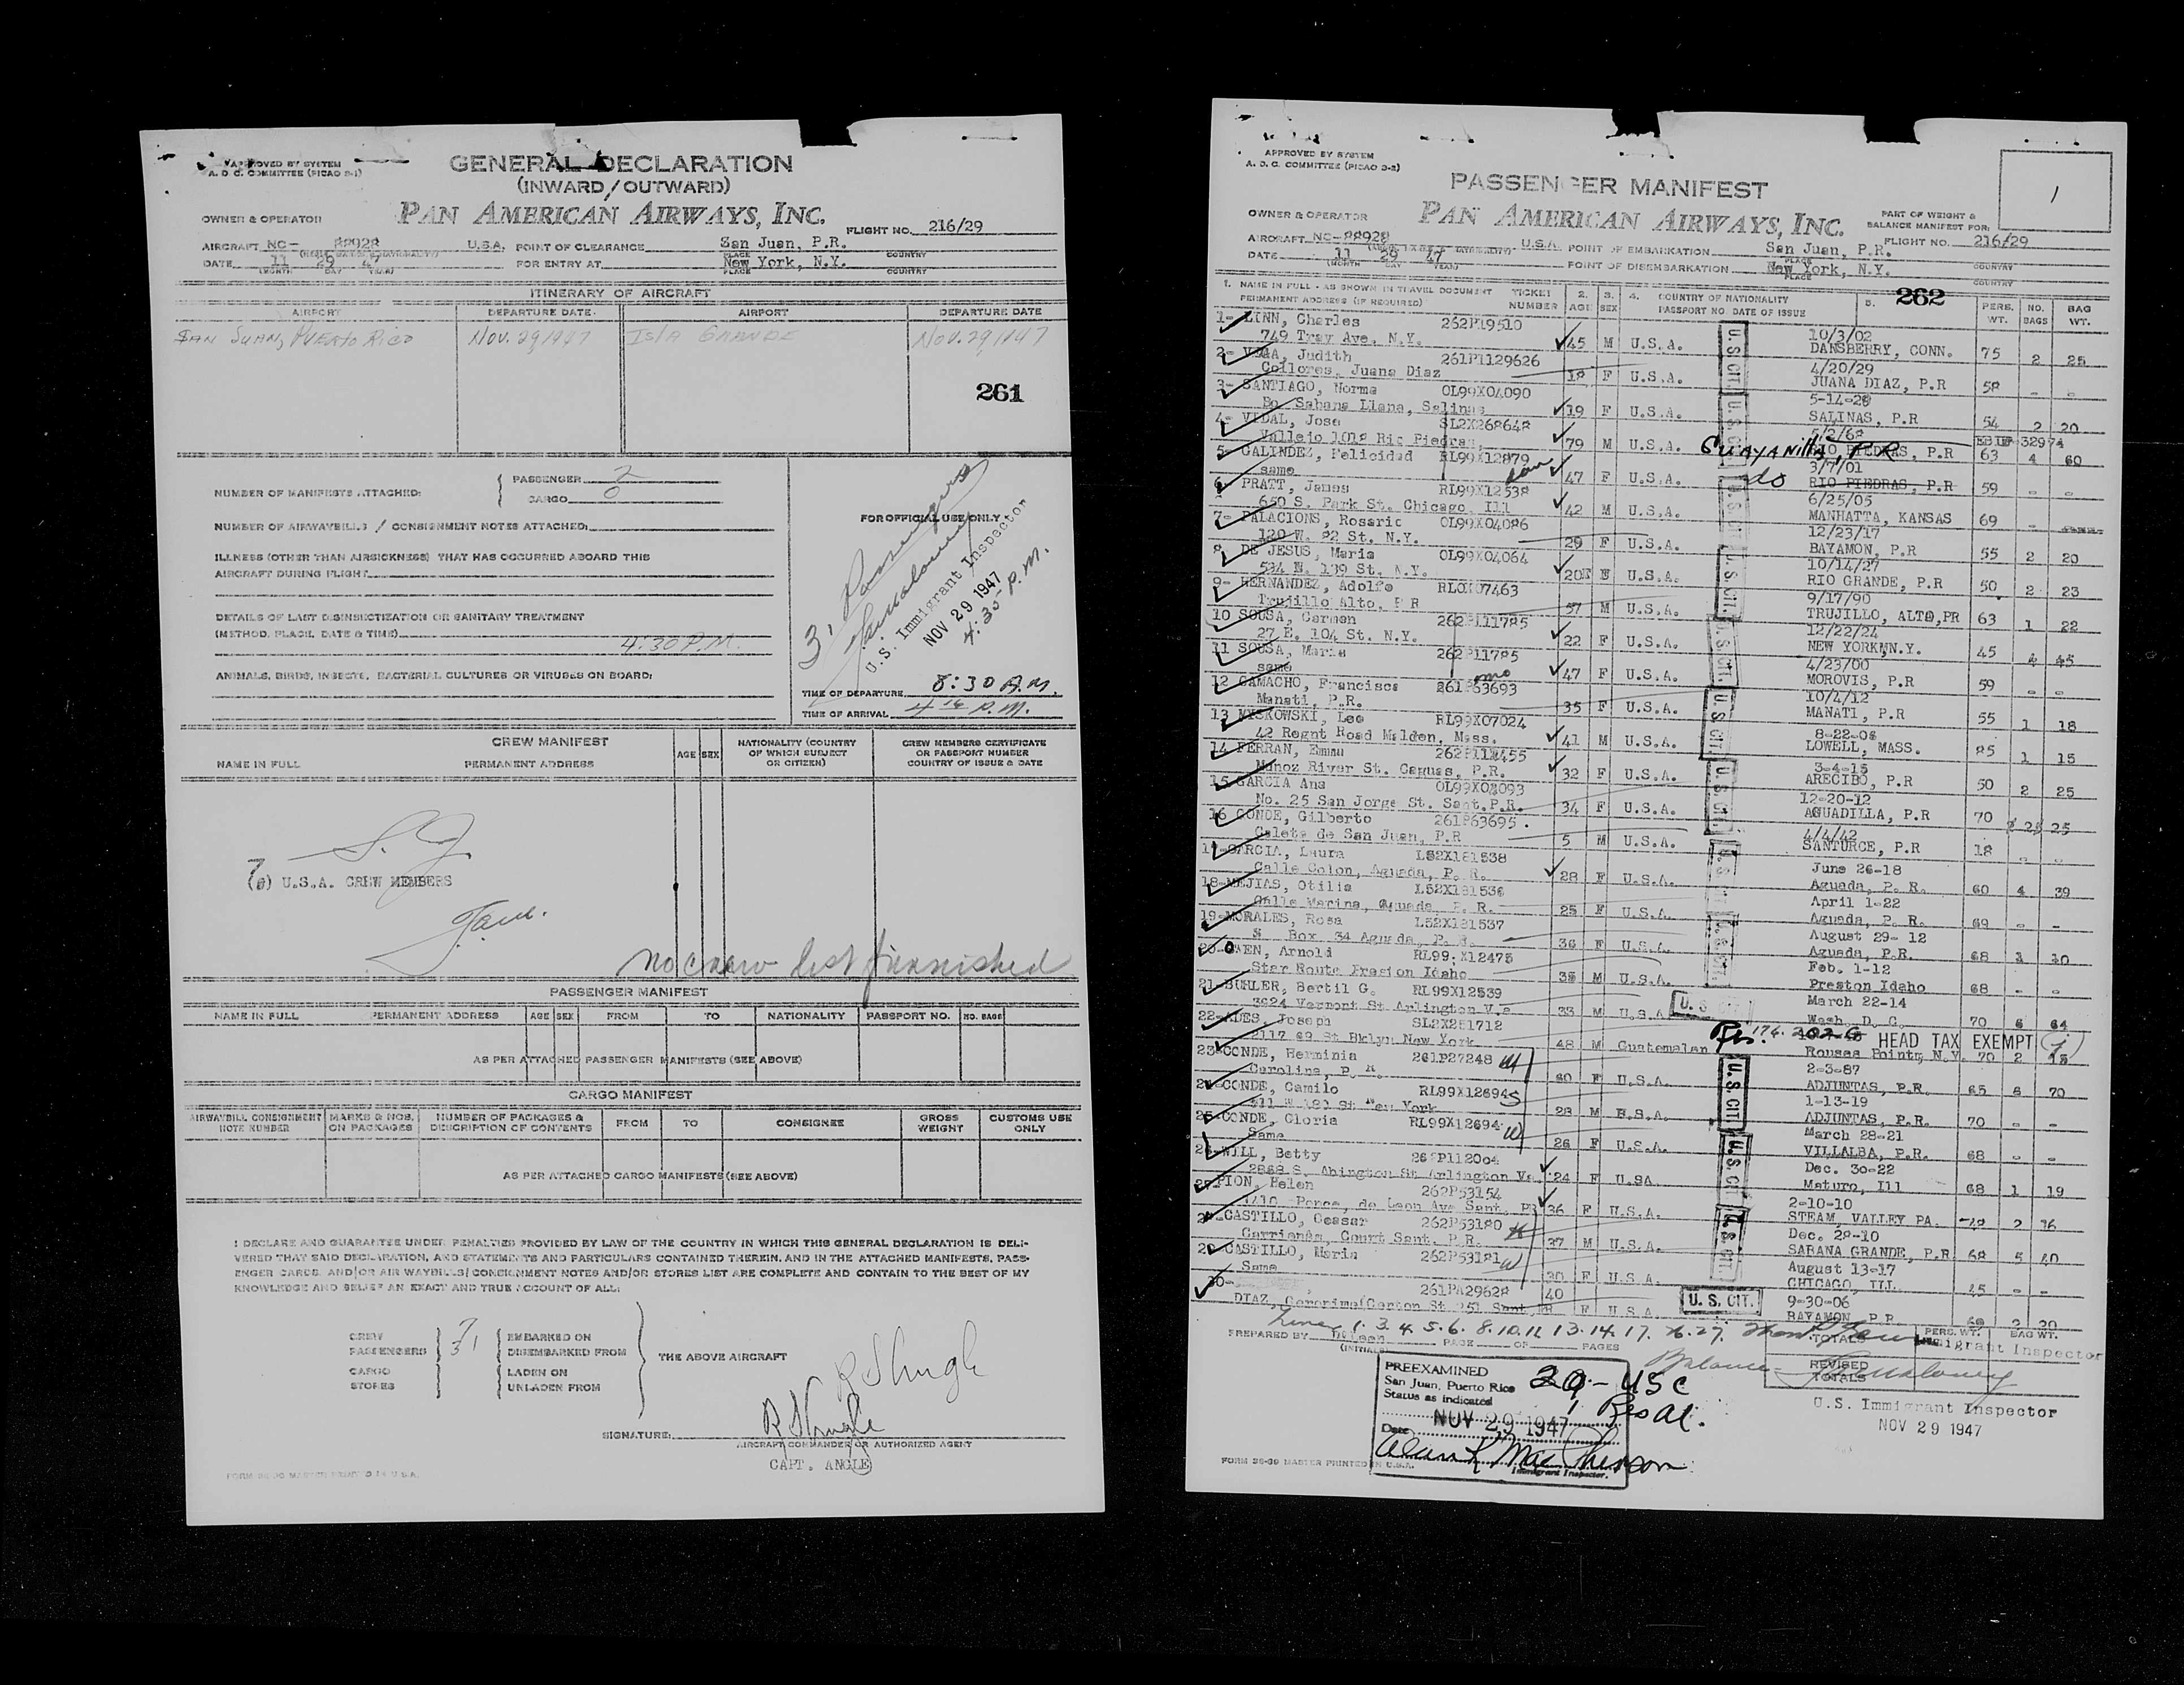 APPROVED BY SYSTEM
A. D. C. COMMITTEE (PICAO D-1)
GENERAL DECLARATION
(INWARD/OUTWARD)
OWNER & OPERATOR
PAN AMERICAN AIRWAYS, INC.
FLIGHT NO. 216/29
AIRCRAFT NC- 88928 U.S.A. POINT OF CLEARANCE San Juan, P.R.
PLACE COUNTRY
DATE 11 29 47 FOR ENTRY AT New York, N.Y.
(MONTH DAY YEAR) PLACE COUNTRY
ITINERARY OF AIRCRAFT
AIRPORT DEPARTURE DATE AIRPORT DEPARTURE DATE
SAN JUAN, PUERTO RICO Nov. 29, 1947 ISLA GRANDE Nov. 29, 1947
261
NUMBER OF MANIFESTS ATTACHED: PASSENGER 2
CARGO 0
NUMBER OF AIRWAYBILLS / CONSIGNMENT NOTES ATTACHED:
ILLNESS (OTHER THAN AIRSICKNESS) THAT HAS OCCURRED ABOARD THIS
AIRCRAFT DURING FLIGHT
DETAILS OF LAST DISINSECTIZATION OR SANITARY TREATMENT
(METHOD, PLACE, DATE & TIME) 4:30 P.M.
ANIMALS, BIRDS, INSECTS, BACTERIAL CULTURES OR VIRUSES ON BOARD:
FOR OFFICIAL USE ONLY
31 Passengers
U.S. Immigrant Inspector
NOV 29 1947
4:35 P.M.
TIME OF DEPARTURE 8:30 A.M.
TIME OF ARRIVAL P.M.
CREW MANIFEST
NAME IN FULL PERMANENT ADDRESS AGE SEX NATIONALITY (COUNTRY OF WHICH SUBJECT OR CITIZEN) CREW MEMBERS CERTIFICATE OR PASSPORT NUMBER COUNTRY OF ISSUE & DATE
7
U.S.A. CREW MEMBERS
no crew list furnished
PASSENGER MANIFEST
NAME IN FULL PERMANENT ADDRESS AGE SEX FROM TO NATIONALITY PASSPORT NO. NO. BAGS
AS PER ATTACHED PASSENGER MANIFESTS (SEE ABOVE)
CARGO MANIFEST
AIRWAYBILL CONSIGNMENT NOTE NUMBER MARKS & NOS. ON PACKAGES NUMBER OF PACKAGES & DESCRIPTION OF CONTENTS FROM TO CONSIGNEE GROSS WEIGHT CUSTOMS USE ONLY
AS PER ATTACHED CARGO MANIFESTS (SEE ABOVE)
I DECLARE AND GUARANTEE UNDER PENALTIES PROVIDED BY LAW OF THE COUNTRY IN WHICH THIS GENERAL DECLARATION IS DELI-
VERED THAT SAID DECLARATION, AND STATEMENTS AND PARTICULARS CONTAINED THEREIN, AND IN THE ATTACHED MANIFESTS, PASS-
ENGER CARDS, AND/OR AIR WAYBILLS/CONSIGNMENT NOTES AND/OR STORES LIST ARE COMPLETE AND CONTAIN TO THE BEST OF MY
KNOWLEDGE AND BELIEF AN EXACT AND TRUE ACCOUNT OF ALL:
CREW 7 EMBARKED ON
PASSENGERS 31 DISEMBARKED FROM THE ABOVE AIRCRAFT
CARGO LADEN ON
STORES UNLADEN FROM
SIGNATURE:
AIRCRAFT COMMANDER OR AUTHORIZED AGENT
CAPT. ANGLE
APPROVED BY SYSTEM
A. D. C. COMMITTEE (PICAO D-2)
PASSENGER MANIFEST
1
OWNER & OPERATOR
PAN AMERICAN AIRWAYS, INC.
PART OF WEIGHT &
BALANCE MANIFEST FOR:
FLIGHT NO. 216/29
AIRCRAFT NC-88928 U.S.A. POINT OF EMBARKATION San Juan, P.R.
DATE 11 29 47 POINT OF DISEMBARKATION New York, N.Y.
(MONTH DAY YEAR) PLACE COUNTRY
1. NAME IN FULL - AS SHOWN IN TRAVEL DOCUMENT TICKET 2. 3. 4. COUNTRY OF NATIONALITY 5. 262 PERS. NO. BAG
PERMANENT ADDRESS (IF REQUIRED) NUMBER AGE SEX PASSPORT NO. DATE OF ISSUE WT. BAGS WT.
1- LINN, Charles 262P19510 10/3/02
749 Tray Ave. N.Y. 45 M U.S.A. DANSBERRY, CONN. 75 2 25
2- VEGA, Judith 261P1129626 4/20/29
Collores, Juana Diaz 18 F U.S.A. JUANA DIAZ, P.R 58 - -
3- SANTIAGO, Norma OL99X04090 5-14-28
Bo. Sabana Llana, Salinas 19 F U.S.A. SALINAS, P.R 54 2 20
4- VIDAL, Jose SL2X268648 5/2/68
Vallejo 1018 Rio Piedras, 79 M U.S.A. Guayanilla, P.R RIO PIEDRAS, P.R 63 4 60
5- GALINDEZ, Felicidad RL99X12879 3/7/01
same 47 F U.S.A. do RIO PIEDRAS, P.R 59 - -
6- PRATT, James RL99X12538 6/25/05
650 S. Park St. Chicago, Ill 42 M U.S.A. MANHATTA, KANSAS 69 -
7- PALACIONS, Rosario OL99X04086 12/23/17
120 W. 82 St. N.Y. 29 F U.S.A. BAYAMON, P.R 55 2 20
8- DE JESUS, Maria OL99X04064 10/14/27
534 E. 139 St. N.Y. 20 F U.S.A. RIO GRANDE, P.R 50 2 23
9- HERNANDEZ, Adolfo RLOX07463 9/17/90
Trujillo Alto, P R 57 M U.S.A. TRUJILLO, ALTO,PR 63 1 22
10 SOUSA, Carmen 262P11785 12/22/24
27 E. 104 St. N.Y. 22 F U.S.A. NEW YORK N.Y. 45 4 45
11 SOUSA, Maria 262P11785 4/23/00
same 47 F U.S.A. MOROVIS, P.R 59 - -
12 CAMACHO, Francisca 261P63693 10/4/12
Manati, P.R. 35 F U.S.A. MANATI, P.R 55 1 18
13 MYSKOWSKI, Leo RL99X07024 8-22-06
42 Regnt Road Malden, Mass. 41 M U.S.A. LOWELL, MASS. 85 1 15
14 FERRAN, Emma 3-4-15
Munoz River St. Caguas, P.R. 32 F U.S.A. ARECIBO, P.R 50 2 25
15 GARCIA Ana 12-20-12
No. 25 San Jorge St. Sant. P.R. 34 F U.S.A. AGUADILLA, P.R 70 25
16 CONDE, Gilberto 261P63695 4/4/42
Caleta de San Juan, P.R 5 M U.S.A. SANTURCE, P.R 18 - -
17-GARCIA, Laura L52X181538 June 26-18
Calle Colon, Aguada, P. R. 28 F U.S.A. Aguada, P. R. 60 4 39
18-MEJIAS, Otilia L52X181536 April 1-22
Calle Marina, Aguada, P. R. 25 F U.S.A. Aguada, P. R. 69 - -
19-MORALES, Rosa L52X181537 August 29- 12
Box 34 Aguada, P. R. 36 F U.S.A. Aguada, P.R. 68
20-OWEN, Arnold RL99X12475 Feb. 1-12
Star Route Preston Idaho 35 M U.S.A. Preston Idaho 68 - -
21-BUHLER, Bertil G. RL99X12539 March 22-14
3624 Vermont St Arlington V.a 33 M U.S.A. Wash. D. C. 70 6 64
22-ADES, Joseph SL2X251712 HEAD TAX EXEMPT
2117 69 St Bklyn New York 48 M Guatemalan Rouses Point, N.Y. 70 2
23-CONDE, Herminia 261P27248 2-3-87
Carolina, P. R. 60 F U.S.A. ADJUNTAS, P.R. 65 6 70
24-CONDE, Camilo RL99X12694 1-13-19
New York 28 M U.S.A. ADJUNTAS, P.R. 70 - -
25-CONDE, Gloria RL99X12694 March 28-21
Same 26 F U.S.A. VILLALBA, P.R. 68 - -
26-WILL, Betty Dec. 30-22
2868 S. Abington St Arlington Va. 24 F U.SA. Maturo, Ill 68 1 19
27-PION, Helen 262P53154 2-10-10
1410 Ponce, de Leon Ave Sant. PR 36 F U.S.A. STEAM, VALLEY PA. 2 36
28-CASTILLO, Ceasar 262P53180 Dec. 28-10
Court Sant. P.R. 37 M U.S.A. SABANA GRANDE, P.R 68 5 40
29-CASTILLO, Maria 262P53181 August 13-17
Same 30 F U.S.A. CHICAGO, ILL. 45 - -
30- 261PA29628 40 9-30-06
DIAZ, F U.S.A U. S. CIT. BAYAMON, P.R 2 20
Lines 1. 3. 4. 5. 6. 8. 10. 11. 13. 14. 17. 26. 27.
PREPARED BY PAGE OF PAGES TOTALS PERS. WT. BAG WT.
(INITIALS) Immigrant Inspector
Balance -
REVISED
TOTALS
U.S. Immigrant Inspector
NOV 29 1947
PREEXAMINED 29 - USC
San Juan, Puerto Rico 1 Res al.
Status as indicated
Date NOV 29 1947
Immigrant Inspector.